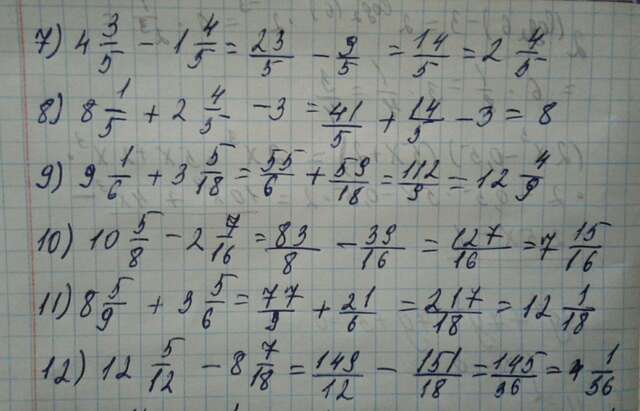 7) 4 3/5 - 1 4/5 = 23/5 - 9/5 = 14/5 = 2 4/5
8) 8 1/5 + 2 4/5 - 3 = 41/5 + 14/5 - 3 = 8
9) 9 1/6 + 3 5/18 = 55/6 + 59/18 = 112/9 = 12 4/9
10) 10 5/8 - 2 7/16 = 83/8 - 39/16 = 127/16 = 7 15/16
11) 8 5/9 + 3 5/6 = 77/9 + 21/6 = 217/18 = 12 1/18
12) 12 5/12 - 8 7/18 = 149/12 - 151/18 = 145/36 = 4 1/36